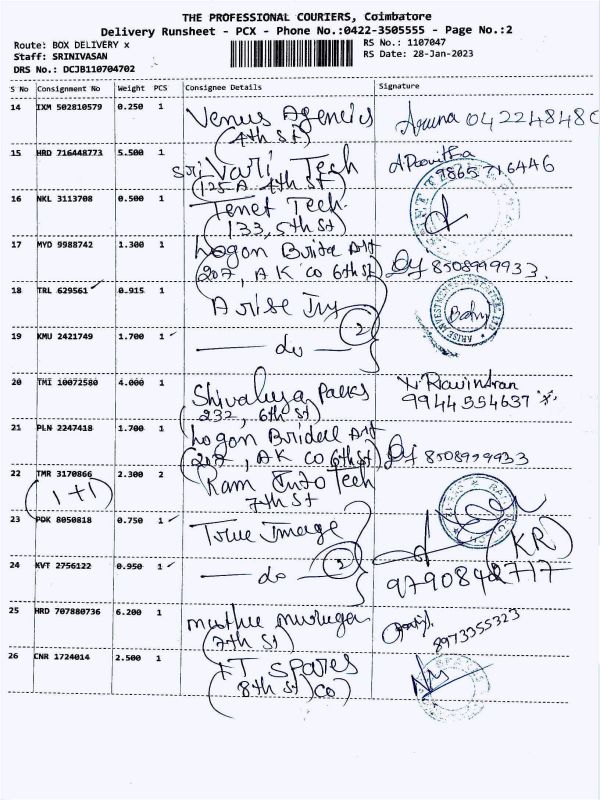 THE PROFESSIONAL COURIERS, Coimbatore
Delivery Runsheet - PCX - Phone No.:0422-3505555 - Page No.:2
Route: BOX DELIVERY x
RS No.: 1107047
Staff: SRINIVASAN
RS Date: 28-Jan-2023
DRS No.: DCJB110704702
S No Consignment No Weight PCS Consignee Details Signature
14 IXM 502810579 0.250 1 Venus Agencies Aruna 042248480
(4th St)
15 HRD 716448773 5.500 1 Sri Vari Tech
(125A 4th St) 9865716446
16 NKL 3113708 0.500 1 Tenet Tech
(133, 5th St)
17 MYD 9988742 1.300 1 Logon Art
(207, AK CO 6th St) 8508999933
18 TRL 629561 0.915 1 Arise
2
19 KMU 2421749 1.700 1 do
20 TMI 10072580 4.000 1 Packs Ravindran
(232, 6th St) 9944554637
21 PLN 2247418 1.700 1 Logon Art
(207, AK CO 6th St) 8508999933
22 TMR 3170866 2.300 2 Ram Info Tech
(1+1) 7th St
23 POK 8050818 0.750 1 True Image
(KR)
24 KVT 2756122 0.950 1 do
25 HRD 707880736 6.200 1
(7th St) 8973355323
26 CNR 1724014 2.500 1 Spares
(8th St) (CO)